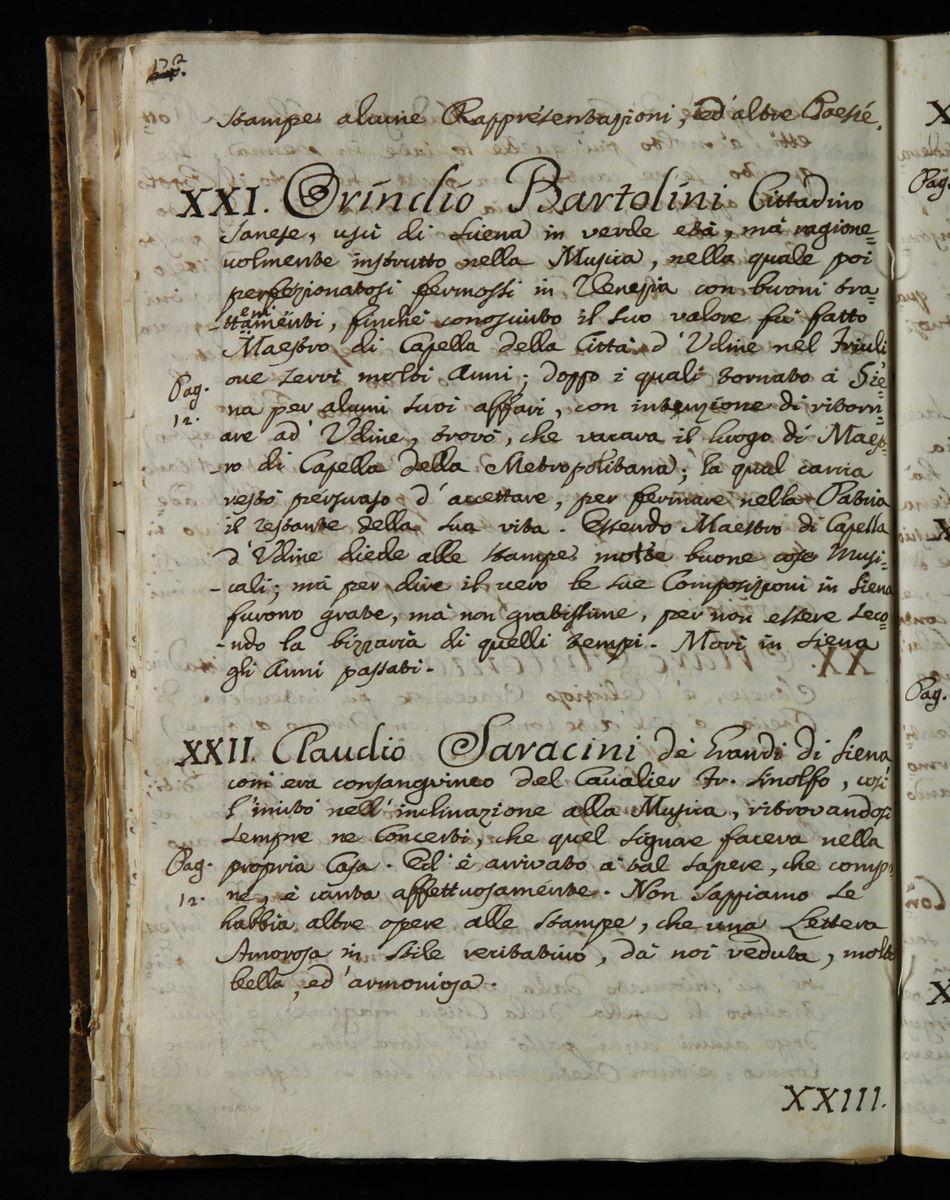 stampe alcune Rappresentazioni, ed' altre Poesie.
XXI. Orindio Bartolini Cittadino
Sanese, uscì di Siena in verde età, mà ragione=
volmente instrutto nella Musica, nella quale poi
perfezionatosi fermossi in Venezia con buoni tra=
-ttamenti, finche conosciuto il suo valore fù fatto
Maestro di Capella della Città d'Udine nel Friuli
ove servì molti Anni; doppo i quali tornato à Sie=
Pag. 12.
na per alcuni suoi affari, con intenzione di ritorn=
are ad' Udine, trovò, che vacava il luogo di Maes=
-ro di Capella della Metropolitana; la qual carica
restò persuaso d'accettare, per fermare nella Patria
il restante della sua vita. Essendo Maestro di Capella
d'Udine diede alle stampe molte buone cose Musi=
-cali; mà per dire il vero le sue Composizioni in Siena
furono grate, mà non gratissime, per non essere seco=
-ndo la bizzaria di quelli tempi. Morì in Siena
gli Anni passati.
XXII. Claudio Saracini dè Grandi di Siena
comè era consanguineo del Cavalier Fr. Sinolfo, così
l'imitò nell'inclinazione alla Musica, ritrovandosi
sempre ne Concerti, che quel Signore faceva nella
Pag. 12.
propria Casa. Ed' è arrivato à tal sapere, che compo
ne, è canta affettuosamente. Non sappiamo se
habbia altre opere alle stampe, che una Lettera
Amorosa in stile recitativo, dà noi veduta, molto
bella, ed' armoniosa.
XXIII.
Pag.
Pag.